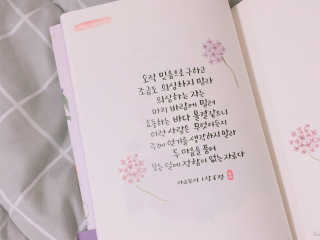 오직 믿음으로 구하고
조금도 의심하지 말라
의심하는 자는
마치 바람에 밀려
요동하는 바다 물결 같으니
이런 사람은 무엇이든지
주께 얻기를 생각하지 말라
두 마음을 품어
모든 일에 정함이 없는 자로다
야고보서 1장 6절